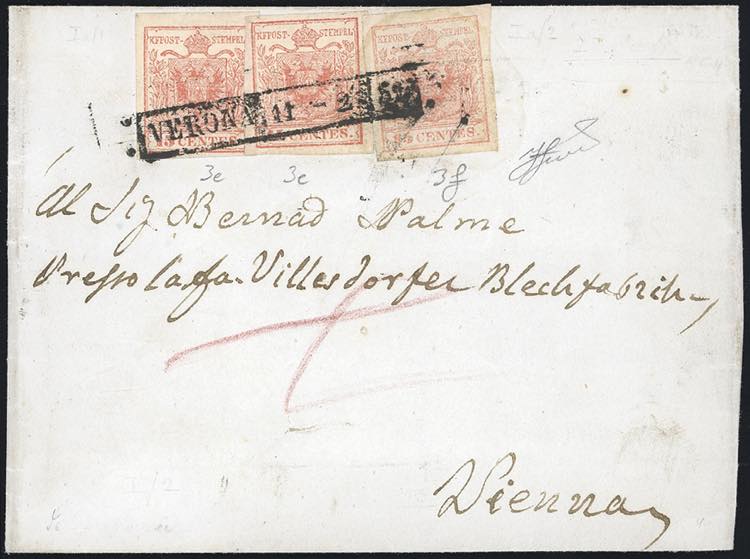 KKPOST-STEMPEL KKPOST-STEMPEL KKPOST-STEMPEL
VERONA 11
15 CENTES. 15 CENTES. 15 CENTES.
3e 3c 3f
Al Sig Bernad Palme
Presso la fa. Villesdorfer Blechfabrik
Vienna